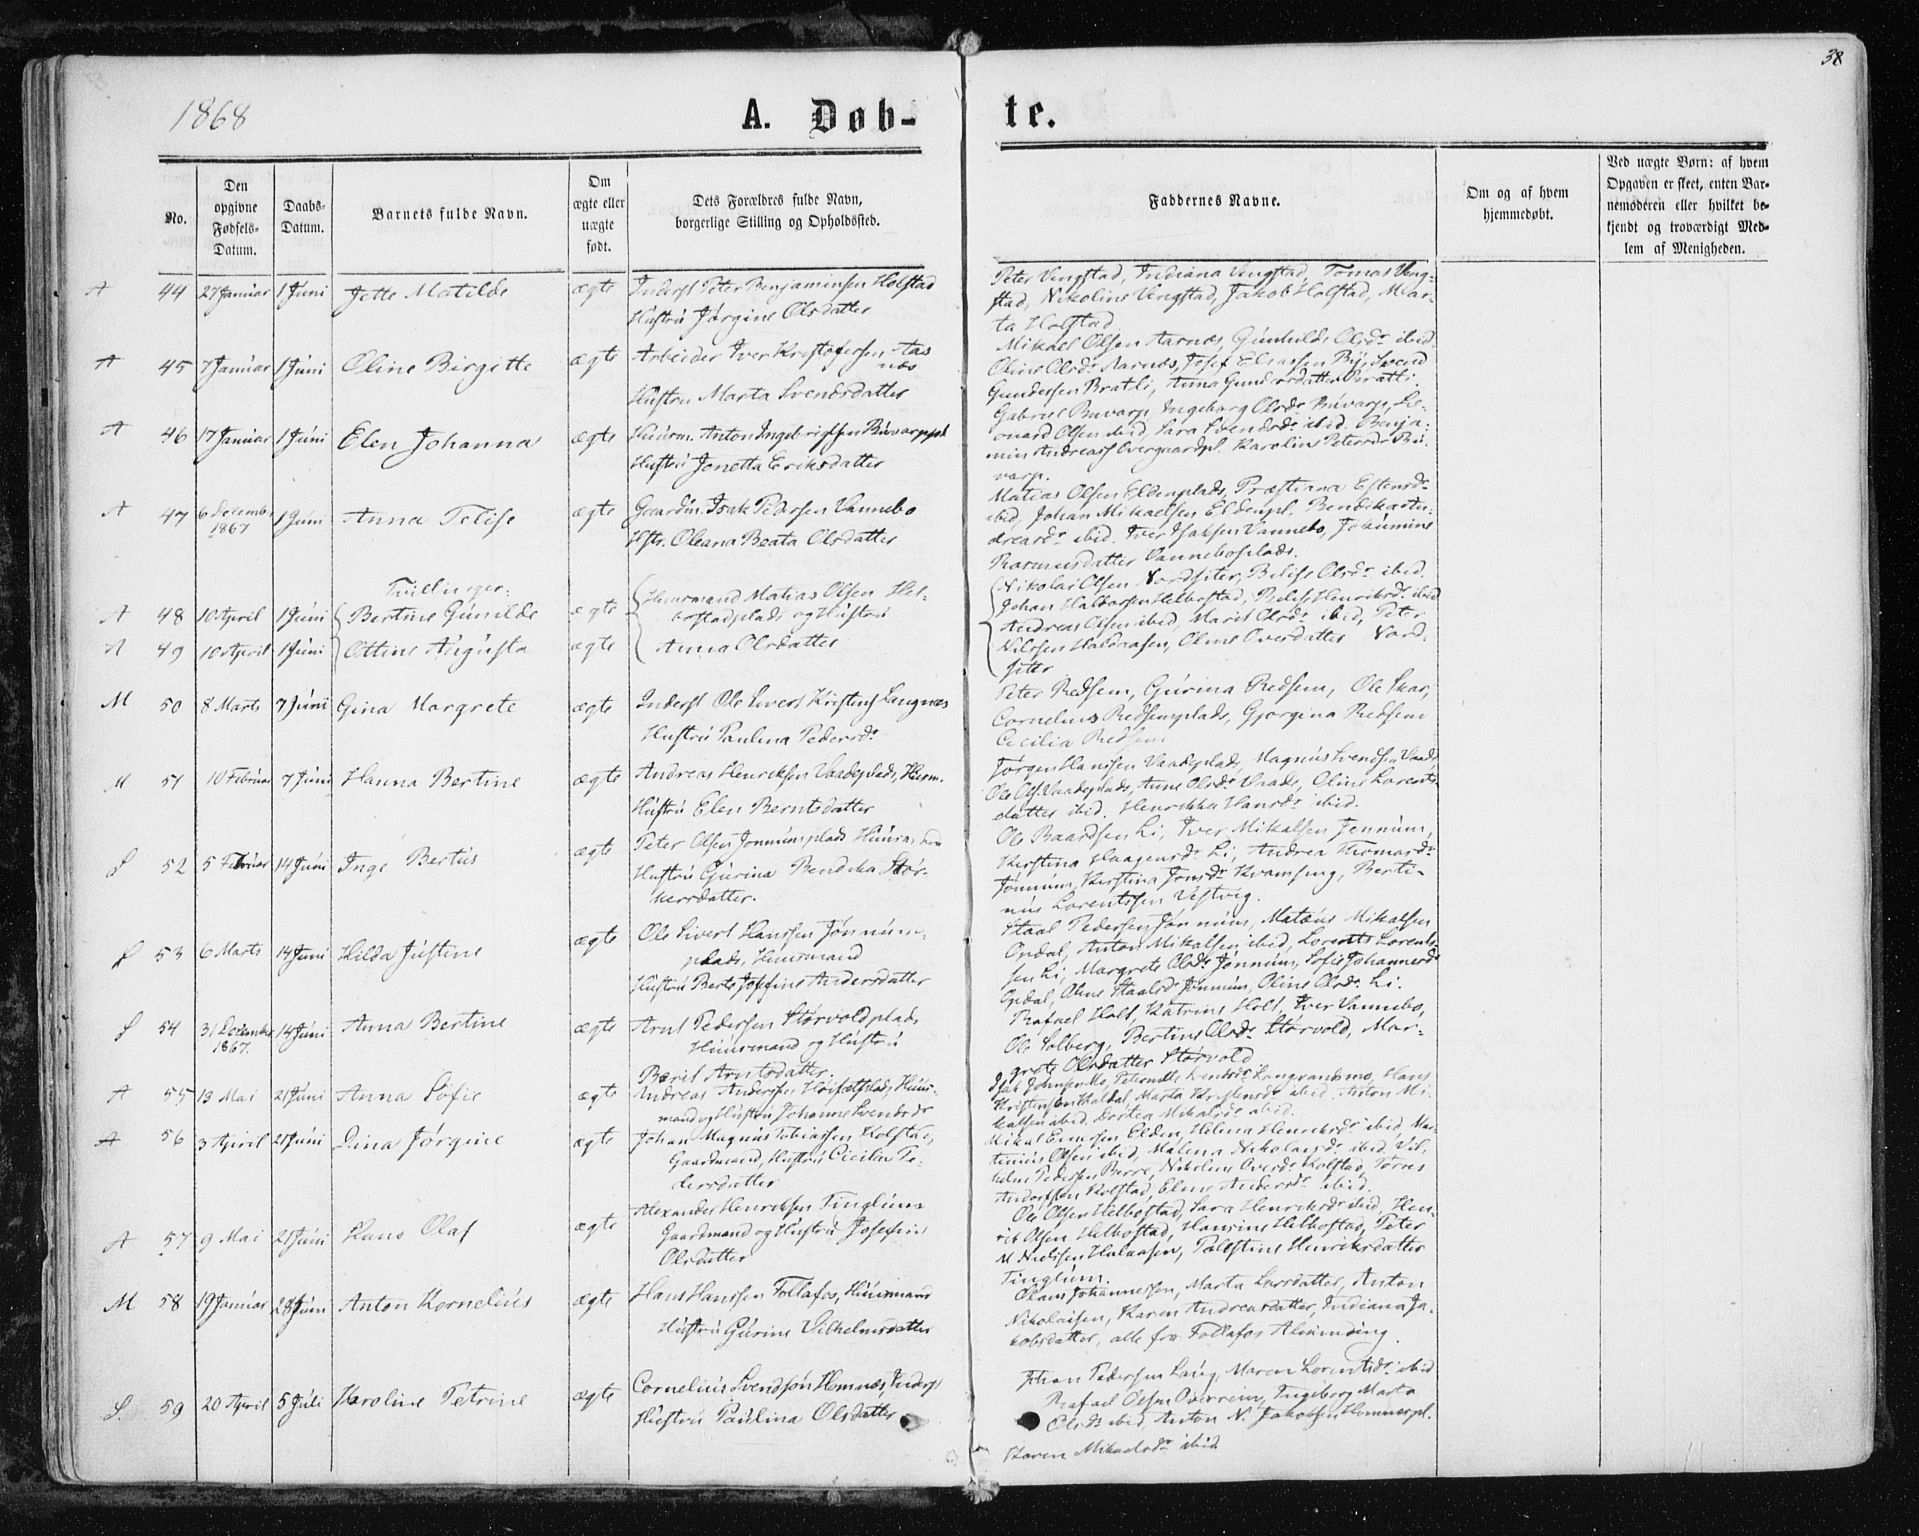 38
1868
A. Døb-
te.
No.
Den opgivne Fødsels-Datum.
Daabs-Datum.
Barnets fulde Navn.
Om ægte eller uægte født.
Dets Forældres fulde Navn, borgerlige Stilling og Opholdssted.
Faddernes Navne.
Om og af hvem hjemmedøbt.
Ved uægte Børn: af hvem Opgaven er skeet, enten Barnemoderen eller hvilket bekjendt og troværdigt Medlem af Menigheden.
A 44 27 Januar 1 Juni Jette Matilde ægte Inderst Peter Benjaminsen Holstad
Hustru Jørgine Olsdatter
Peter Vengstad, Indiana Vengstad, Tomas Veng-
stad, Nikoline Vengstad, Jakob Holstad, Mar-
ta Holstad
A 45 7 Januar 1 Juni Oline Birgitte ægte Arbeider Iver Kristofersen Aas
næs
Hustru Marta Svendsdatter
Mikael Olsen Aarnæs, Gunhilde Olsdr ibid.
Oline Olsdr Aarnæs, Josef Eliassen By, Svend
Gundersen Bratli, Anna Gundersdatter Bratli.
A 46 17 Januar 1 Juni Elen Johanna ægte Huusm. Anton Ingebrigtsen Buvarppl
Hustru Jonetta Eriksdatter
Gabriel Buvarp, Ingeborg Olsdr Buvarp, Le-
onard Olsen ibid, Sara Svendsdr ibid. Benja-
min Andreass Overgaardpl. Karolin Petersdr Bu-
varp.
A 47 6 December 1867 1 Juni Anna Telise ægte Gaardm. Isak Pedersen Vannebo
Hstr. Oleana Beata Olsdatter
Matias Olsen Eldenplads, Præstiana Estensdr
ibid, Johan Mikaelsen Eldenpl. Bendika An-
dreasdr ibid. Iver Isaksen Vannebo, Johanna
Rasmusdatter Vanneboplads.
Tvillinger:
A 48 10 April 1 Juni Bertine Gunilde ægte Huusmand Matias Olsen Hel-
bostadplads og Hustru
A 49 10 April 1 Juni Ottine Augusta ægte Anna Olsdatter
Nikolai Olsen Nordsiter, Belise Olsdr ibid.
Johan Haldorsen Helbostad, Belise Henriksdr ibid
Andreas Olsen ibid, Marit Olsdr ibid, Peter
Nilssen Haldaasen, Oline Oversdatter Nord-
siter
M 50 8 Marts 7 Juni Gina Margrete ægte Inderst Ole Sivert Kristens Langnæs
Hustru Paulina Pedersdr
Peter Redsem, Gurina Redsem, Ole Skar,
Cornelius Redsemplads, Gjørgina Redsem
Cecilia Redsem
M 51 10 Februar 7 Juni Hanna Bertine ægte Andreas Henriksen Vaadeplads, Husm.
Hustru Elen Berntsdatter
Jørgen Hanssen Vaadeplads, Magnus Svendsen Vaade,
Ole Ols. Vaadeplads, Anne Olsdr Vaade, Oline Lorents-
datter ibid. Henrikka Hansdr ibid.
S 52 5 Februar 14 Juni Inge Bertus ægte Peter Olsen Jønnumplads Huusmand
Hustru Gurina Bendika Stør-
kersdatter.
Ole Baardsen Li, Iver Mikalsen Jønnum,
Kirstina Haagensdr Li, Andrea Thomasdr
Jønnum, Kirstina Jonsdr Kvamseng, Berti-
nus Lorentssen Vestvig.
S 53 6 Marts 14 Juni Hilda Justine ægte Ole Sivert Hanssen Jønnum-
plads, Huusmand
Hustru Berte Josefine Andersdatter
Staal Pedersen Jønnum, Matæus Mikalsen
Opdal, Anton Mikalsen ibid, Lorents Lorents-
sen Li, Margrete Olsdr Jønnum, Sofie Johannesdr
Opdal, Oline Staalsdr Jønnum, Oline Olsdr Li.
S 54 31 December 1867. 14 Juni Anna Bertine ægte Arnt Pedersen Størvoldplads
Huusmand og Hustru
Berit Arntsdatter.
Rafael Holt, Katrine Holt, Iver Vannebo,
Ole Solberg, Bertine Olsdr Størvold, Mar-
grete Olsdatter Størvold
A 55 13 Mai 21 Juni Anna Sofie ægte Andreas Andersen Hoiseetplads, Huus-
mand og Hustru Johanne Svendsdr
Isak Johnsen Mo, Peternelle Svendsdr Langvandsmo, Hans
Kristensen Haldal, Marta Kristensdr ibid. Anton Mi-
kalsen ibid. Dortea Mikalsdr ibid.
A 56 3 April 21 Juni Dina Jørgine ægte Johan Magnus Tobiassen Holstad,
Gaardmand, Hustru Cicilia Pe-
dersdatter
Mikal Enersen Elden, Helena Henriksdr ibid, Mar-
tinus Olsen ibid, Malena Nikolaisdr ibid. Vil-
helm Pedersen Berre, Nikoline Oversdr Holstad, Tørris
Andorssen Holstad, Eline Andersdr ibid.
A 57 9 Mai 21 Juni Hans Olaf ægte Alexander Henriksen Tinglum
Gaardmand og Hustru Josefine
Olsdatter
Ole Olsen Helbostad, Sara Henriksdr ibid, Hen-
rik Olsen Helbostad, Hansine Helbostad, Peter
M Nielsen Halaasen, Palestine Henriksdatter
Tinglum.
M 58 19 Januar 28 Juni Anton Kornelius ægte Hans Hanssen Follafos, Huusmand
Hustru Gurine Vilhelmsdatter
Olaus Johannessen, Marta Larsdatter, Anton
Nikolaisen, Karen Andreasdatter, Indiana Ja-
kobsdatter, alle fra Follafos Almending.
S. 59 20 April 5 Juli Karoline Petrine ægte Cornelius Svendsøn Hemnæs, Inderst
Hustru Paulina Olsdatter
Johan Pedersen Laug, Maren Lorentsdr ibid
Rafael Olsen Overrein, Ingeborg Marta
Olsdr ibid Anton N. Jakobsen Hemnespl.
Karen Mikaelsdr ibid